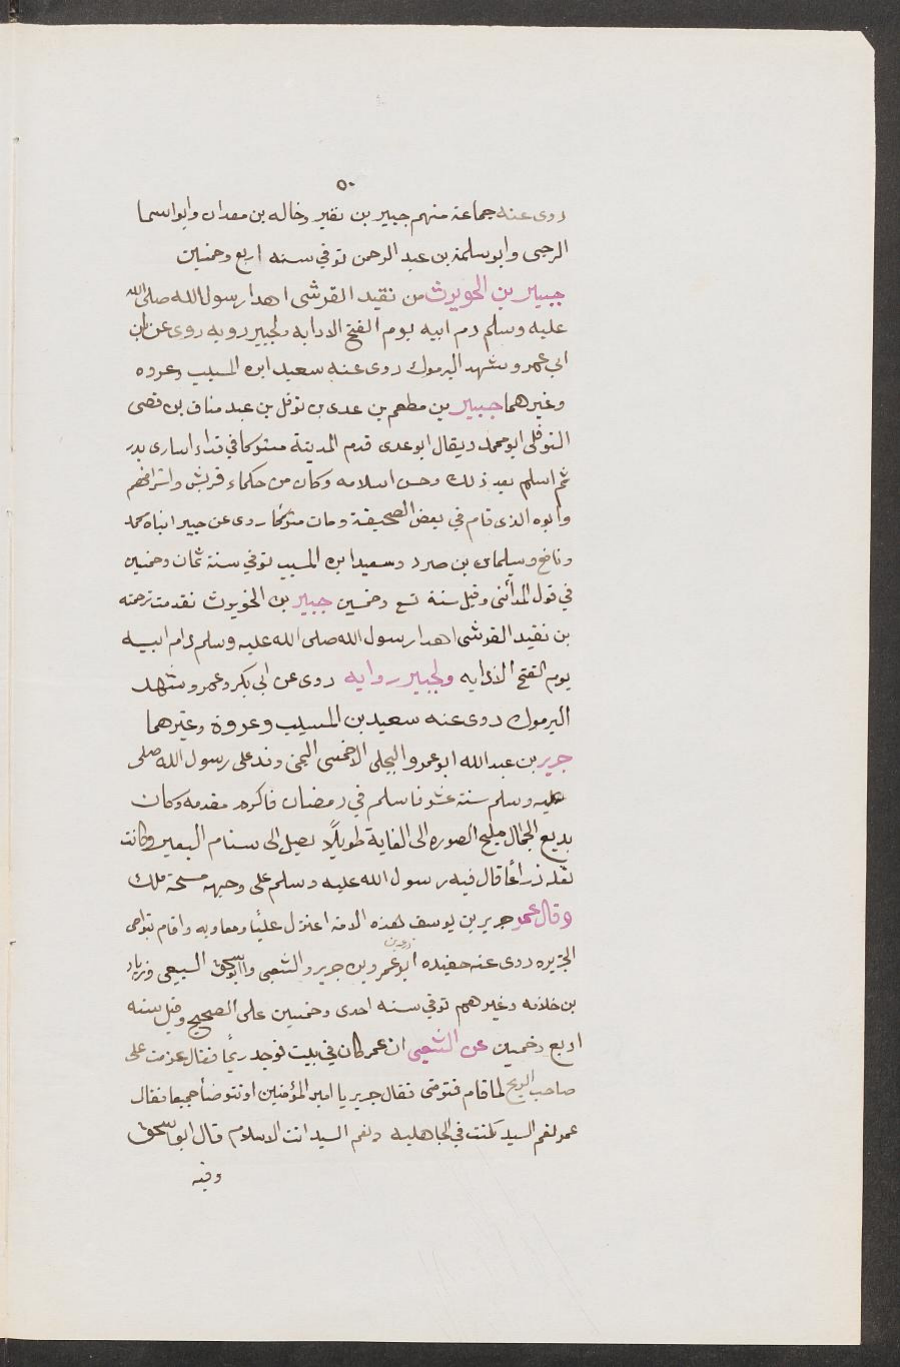 ٥٠
روى عنه جماعة منهم جبير بن نفير وخاله بن معدان وابو اسما
الرحبى وابو سلمة بن عبد الرحمن توفي سنه اربع وخمسين
جبير بن الحويرث من نقيد القرشى اهدا رسول الله صلى الله
عليه وسلم دم ابيه يوم الفتح الا دابه ولجبير رويه روى عن
ابي عمر وشهد اليرموك روى عنه سعيد ابن المسيب وعروه
وغيرهما جبير بن مطعم بن عدى بن نوفل بن عبد مناف بن قصى
النوفلى ابو محمد ويقال ابو عدى قدم المدينة مشركا في فداء اسارى بدر
ثم اسلم بعد ذلك وحسن اسلامه وكان من حكماء قريش واشرافهم
وابوه الذى قام في نقض الصحيفة ومات مشركا روى عن جبير ابناه محمد
ونافع وسليمان بن صرد وسعيد ابن المسيب توفي سنة ثمان وخمسين
في قول المدائنى وقيل سنة تسع وخمسين جبير بن الحويرث تقدمت ترجمته
بن نقيد القرشى اهدا رسول الله صلى الله عليه وسلم دم ابيه
يوم الفتح الا دابه ولجبير روايه روى عن ابي بكر وعمر وشهد
اليرموك روى عنه سعيد بن المسيب وعروة وغيرهما
جرير بن عبد الله ابو عمرو البجلى الاحمسى اليمنى وفد على رسول الله صلى
عليه وسلم سنة عشر فاسلم في رمضان فاكرم مقدمه وكان
بديع الجمال مليح الصوره الى الغاية طويلًا يصل الى سنام البعير وكانت
نعله ذراعًا قال فيه رسول الله عليه وسلم على وجهه مسحة ملك
وقال عمر جرير بن يوسف لهذه الامه اعتزل عليًا ومعاويه واقام بنواحى
الجزيره روى عنه حفيده ابو عمرو بن جرير والشعبى وابو اسحق السبيعى وزياد
بن علاقه وغيرهم توفي سنه احدى وخمسين على الصحيح وقيل سنه
اربع وخمسين عن الشعبى ان عمر كان في بيت فوجد ريحًا فقال عزمت على
صاحب الريح لما قام فتوضى فقال جرير يا امير المؤمنين او نتوضأ جميعا فقال
عمر نعم السيد كنت في الجاهليه ونعم السيد انت الاسلام قال ابو اسحق
وفيه